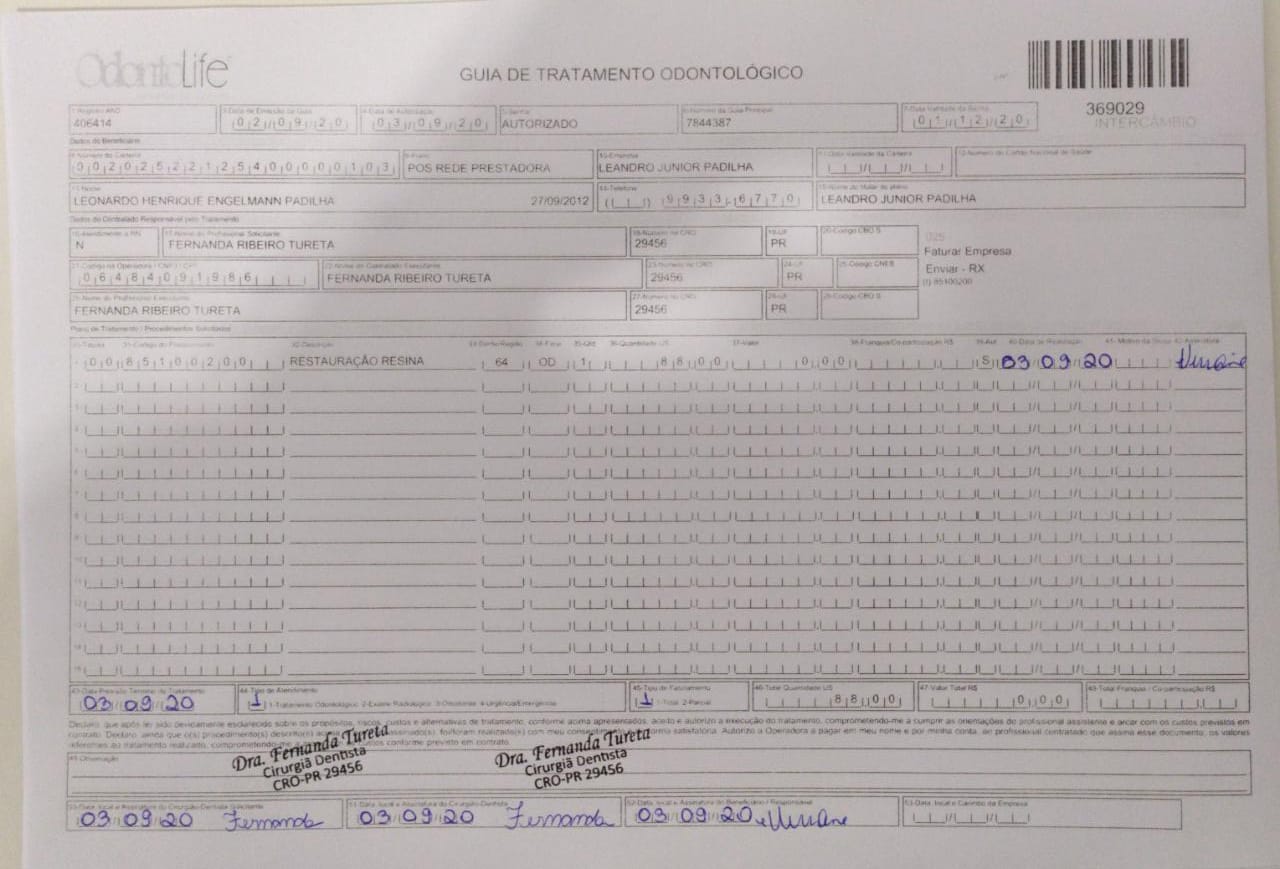 OdontoLife
GUIA DE TRATAMENTO ODONTOLÓGICO
369029
INTERCÂMBIO
1-Registro ANS
406414
3-Data de Emissão da Guia
02/09/20
4-Data de Autorização
03/09/20
5-Senha
AUTORIZADO
6-Número da Guia Principal
7844387
7-Data Validade da Senha
01/12/20
Dados do Beneficiário
8-Número da Carteira
00202522125400000103
9-Plano
POS REDE PRESTADORA
10-Empresa
LEANDRO JUNIOR PADILHA
11-Data Validade da Carteira
12-Número do Cartão Nacional de Saúde
13-Nome
LEONARDO HENRIQUE ENGELMANN PADILHA 27/09/2012
14-Telefone
( ) 9933-6770
15-Nome do titular do plano
LEANDRO JUNIOR PADILHA
Dados do Contratado Responsável pelo Tratamento
16-Atendimento a RN
N
17-Nome do Profissional Solicitante
FERNANDA RIBEIRO TURETA
18-Número no CRO
29456
19-UF
PR
20-Código CBO S
025
Faturar Empresa
Enviar - RX
(I) 85100200
21-Código na Operadora / CNPJ / CPF
06484091986
22-Nome do Contratado Executante
FERNANDA RIBEIRO TURETA
23-Número no CRO
29456
24-UF
PR
25-Código CNES
26-Nome do Profissional Executante
FERNANDA RIBEIRO TURETA
27-Número no CRO
29456
28-UF
PR
29-Código CBO S
Plano de Tratamento / Procedimentos Solicitados
30-Tabela 31-Código do Procedimento 32-Descrição 33-Dente/Região 34-Face 35-Qtd 36-Quantidade US 37-Valor 38-Franquia/Co-participação R$ 39-Aut 40-Data de Realização 41-Motivo da Glosa 42-Assinatura
1- 00 85100200 RESTAURAÇÃO RESINA 64 OD 1 8800 000 S 03/09/20
2-
3-
4-
5-
6-
7-
8-
9-
10-
11-
12-
13-
14-
15-
43-Data Previsão Término do Tratamento
03/09/20
44-Tipo de Atendimento
1 1-Tratamento Odontológico 2-Exame Radiológico 3-Ortodontia 4-Urgência/Emergência
45-Tipo de Faturamento
1 1-Total 2-Parcial
46-Total Quantidade US
8800
47-Valor Total R$
000
48-Total Franquia / Co-participação R$
Declaro, que após ter sido devidamente esclarecido sobre os propósitos, riscos, custos e alternativas de tratamento, conforme acima apresentados, aceito e autorizo a execução do tratamento, comprometendo-me a cumprir as orientações do profissional assistente e arcar com os custos previstos em
contrato. Declaro, ainda que o(s) procedimento(s) descrito(s) foi/foram realizado(s) com meu forma satisfatória. Autorizo a Operadora a pagar em meu nome e por minha conta, ao profissional contratado que assina esse documento, os valores
referentes ao tratamento realizado, comprometendo-me a conforme previsto em contrato.
49-Observação
Dra. Fernanda Tureta
Cirurgiã Dentista
CRO-PR 29456
Dra. Fernanda Tureta
Cirurgiã Dentista
CRO-PR 29456
50-Data, local e Assinatura do Cirurgião-Dentista Solicitante
03/09/20 Fernanda
51-Data, local e Assinatura do Cirurgião-Dentista
03/09/20 Fernanda
52-Data, local e Assinatura do Beneficiário / Responsável
03/09/20
53-Data, local e Carimbo da Empresa